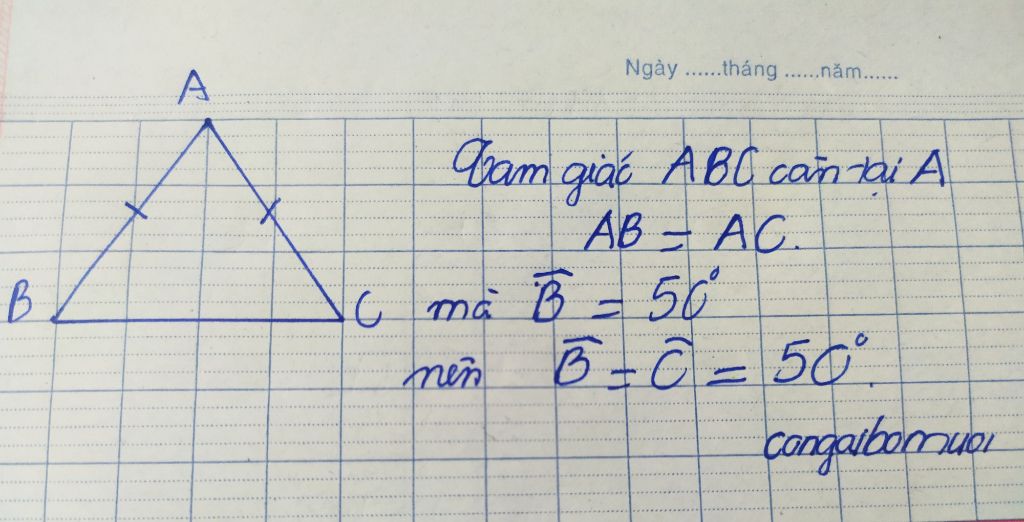 Ngày ......tháng ......năm......
A
Tam giác ABC cân tại A
AB = AC.
B
C
mà B̂ = 50°
nên B̂ = Ĉ = 50°.
congaibomuoi